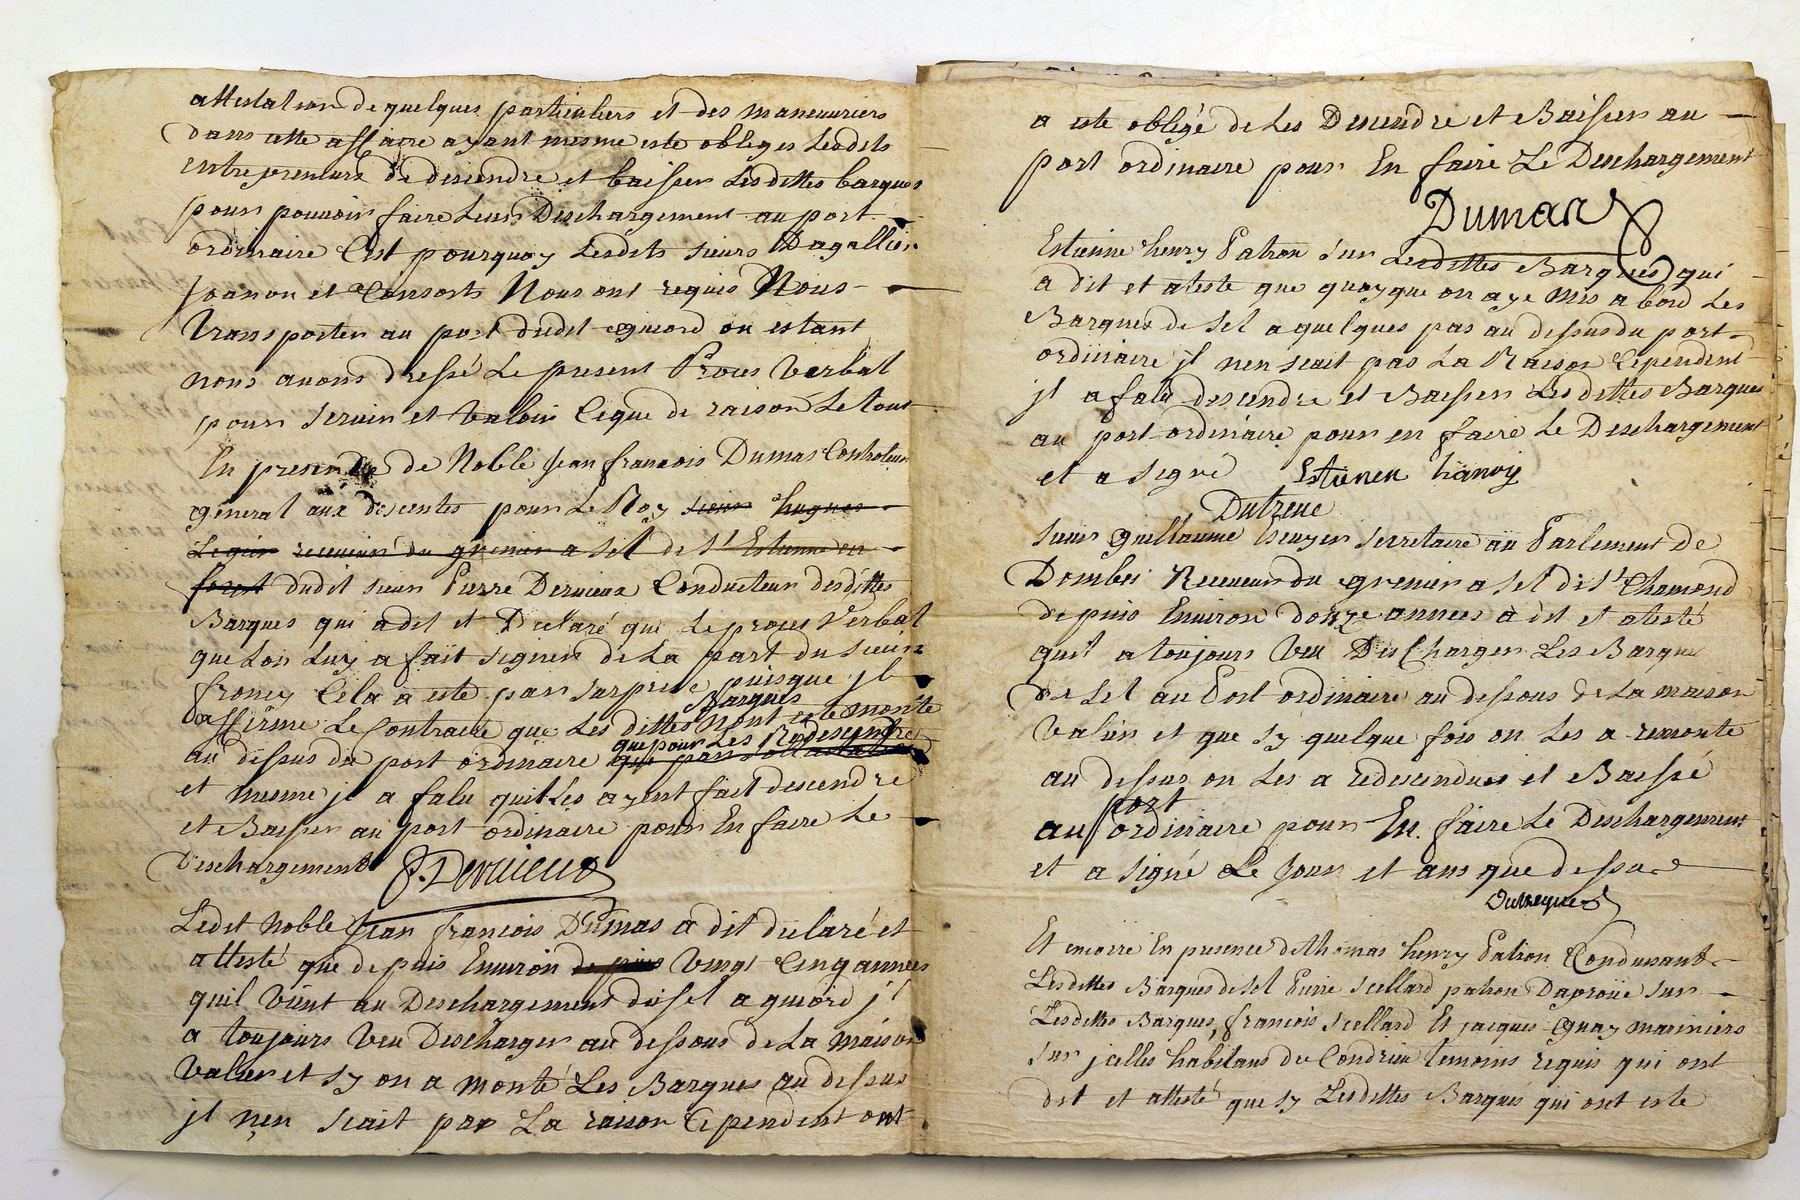 attestation de quelques particuliers et des maneuvriers
dans cette affaire ayant mesme este obliges lesdits
entrepreneurs de descendre et baisser lesdittes barques
pour pouvoir faire leur Deschargement au port
ordinaire C'est pourquoy lesdits sieurs Dagallier
Joanon et Consorts Nous ont requis Nous
transporter au port dudit ou estant
nous avons dressé Le present Proces Verbal
pour servir et valoir Ceque de raison Le tout
En presence de Noble Jean françois Dumas Controleur
general aux descentes pour Le Roy sieur hugues
receveur du grenier a sel de St Estienne en
forest dudit sieur Pierre Dervieux Conducteur desdittes
Barques qui a dit et Declaré que Le proces Verbal
que Lon Luy a fait signer de La part du sieur
Cela a este par surprise puisque jl
affirme Le Contraire que Les dittes Barques nont este monte
au dessus du port ordinaire que pour Les Redescendre
et mesme jl a falu quil Les ayent fait descendre
et Baisser au port ordinaire pour En faire Le
Deschargement P. Dervieux
Ledit Noble Jean françois Dumas a dit declaré et
attesté que depuis Environ depuis Vingt Cinq années
quil Vient au Deschargement du sel a jl
a toujours Veu Descharger au dessous de La maison
Valier et sy on a monté Les Barques au dessus
jl nen scait pas La raison Cependent ont
a este obligé de Les Descendre et Baisser au
port ordinaire pour En faire Le Deschargement
Dumas
Estienne henry Patron sur Lesdittes Barques qui
a dit et ateste que quoyque on aye mis abord Les
Barques de sel a quelques pas au dessus du port
ordinaire jl nen scait pas La Raison Cependent
jl a falu descendre et Baisser Lesdittes Barques
au port ordinaire pour en faire Le Deschargement
et a signé Estienen hanrij
Dutreue
sieur guillaume secretaire au Parlement de
Dombes Receveur du grenier a sel de St Chamond
depuis Environ douze années a dit et atesté
quil a toujours Veu DesCharger Les Barques
de sel au Port ordinaire au dessous de La maison
Valier et que sy quelque fois on Les a remonté
au dessus on Les a redescendues et Baissé
au port ordinaire pour En faire Le Deschargement
et a signé Le Jour et ans que dessus
Et encore En presence de thomas henry Patron Conduisant
Lesdittes Barques de sel Pierre scellard patron sur
Lesdittes Barques, françois scellard Et jacques mariniers
sur jcelles habitans de Condrieu temoins requis qui ont
dit et attesté que sy Lesdittes Barques qui ont este